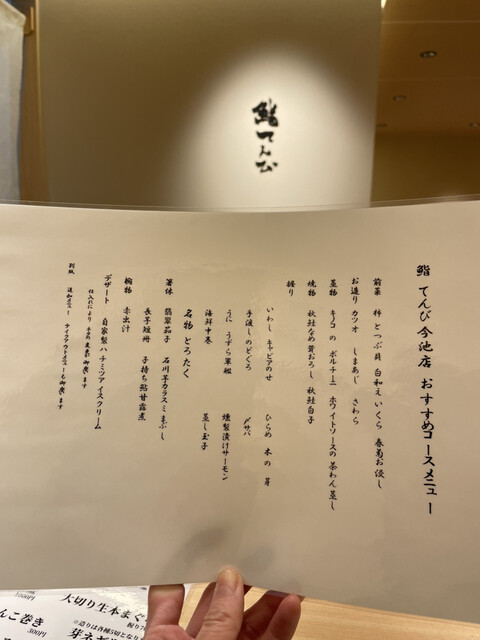 鮨てんぴ
鮨 てんぴ今池店 おすすめコースメニュー
前菜 柿とつぶ貝 白和え いくら 春菊お浸し
お造り カツオ しまあじ さわら
蒸物 キノコの ポルチーニ ホワイトソースの茶わん蒸し
焼物 秋鮭なめ茸おろし 秋鮭白子
握り
いわし キャビアのせ ひらめ 木の芽
手渡しのどくろ 〆サバ
うに うずら軍艦 燻製漬けサーモン
海鮮中巻 蒸し玉子
名物 とろたく
箸休 翡翠茄子 石川芋カラスミまぶし
長芋短冊 子持ち鮎甘露煮
椀物 赤出汁
デザート 自家製ハチミツアイスクリーム
仕入れにより 多少の変更が御座います
別紙 追加メニュー テイクアウトメニューも御座います
大切り生本まぐ
※造りは各種5切となり
芽ネギ
んこ巻き
300円